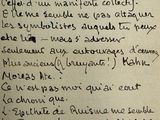 l'effet d'un manifeste collectif.
Il me semble ne pas attaquer
les symbolistes auxquels tu peux
être lié — mais s'adresser
seulement aux entourages d'œuvres
plus anciens (& bruyants!) Kahn
Moréas &c.
Ce n'est pas moi qui ai écrit
la chronique.
L'épithète de Ruisme me semble